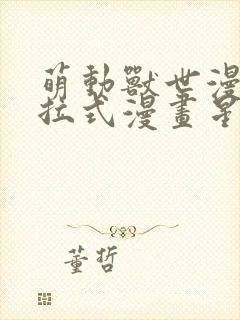 萌動獸世漫
拉式漫畫星
董哲